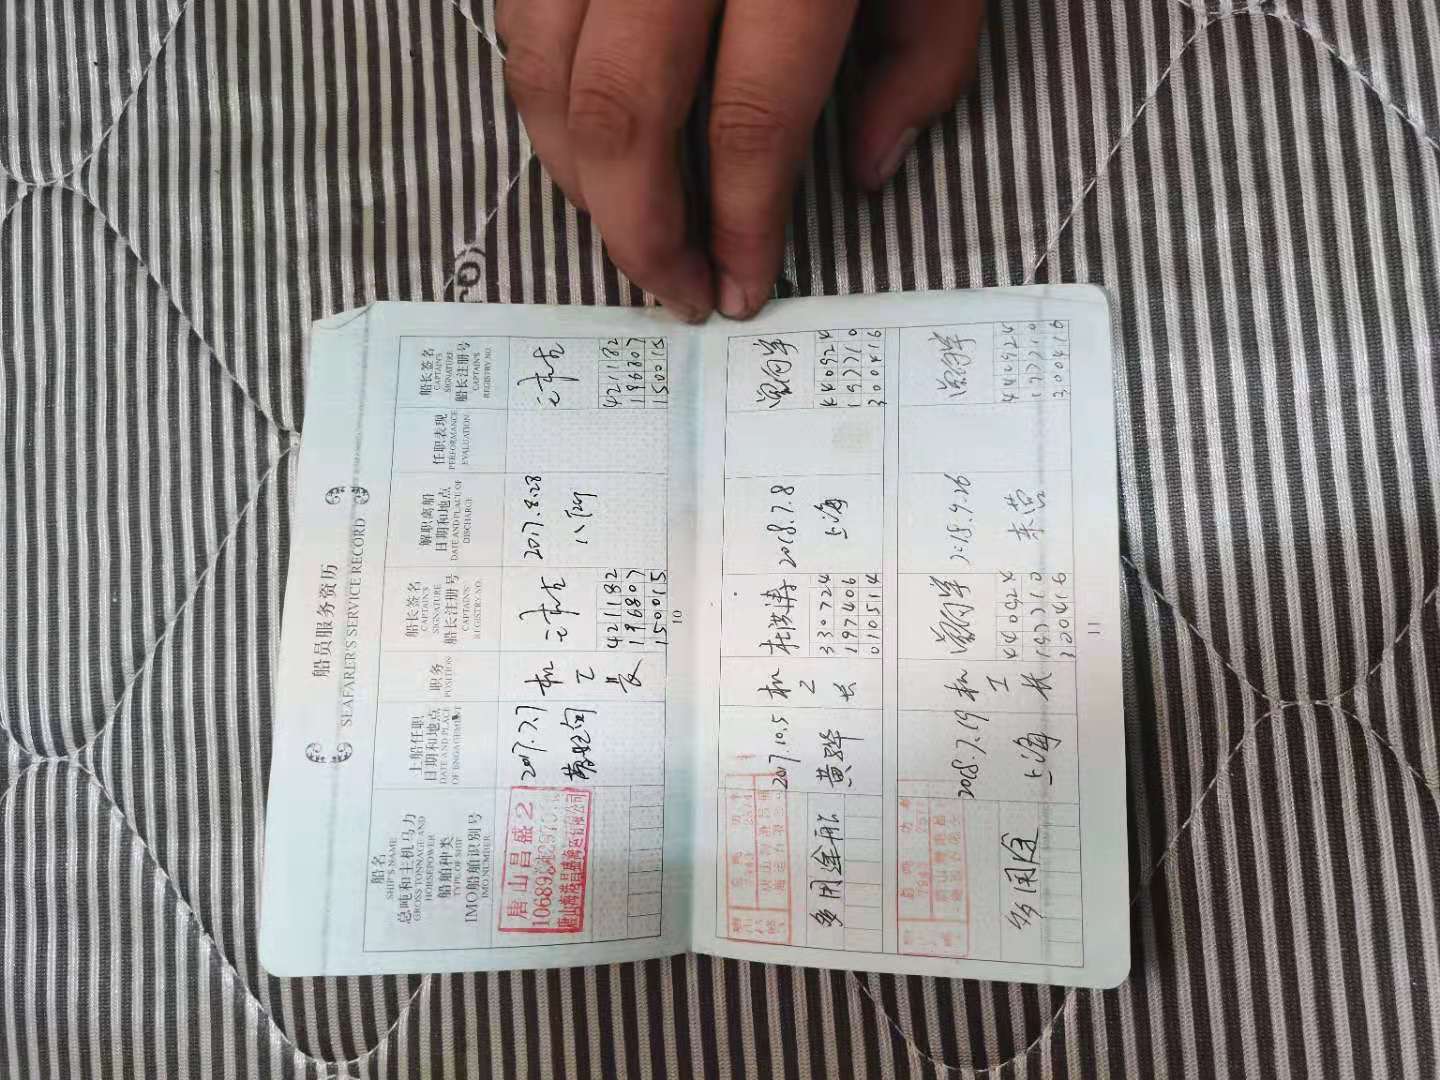 船员服务资历
SEAFARER'S SERVICE RECORD
船名
SHIP'S NAME
总吨和主机马力
GROSS TONNAGE AND
HORSEPOWER
船舶种类
TYPE OF SHIP
IMO船舶识别号
IMO NUMBER
上船任职
日期和地点
DATE AND PLACE
OF ENGAGEMENT
职务
POSITION
船长签名
CAPTAIN'S
SIGNATURE
船长注册号
CAPTAIN'S
REGISTRY NO.
解职离船
日期和地点
DATE AND PLACE OF
DISCHARGE
任职表现
PERFORMANCE
EVALUATION
船长签名
CAPTAIN'S
SIGNATURE
船长注册号
CAPTAIN'S
REGISTRY NO.
唐山昌盛2
2017.7.7
机
工
长
4211182
196807
150015
2017.8.28
4211182
196807
150015
10
多用途船
2017.10.5
黄骅
机
工
长
杜洪涛
330724
197406
010514
2018.7.8
上海
440924
197210
300416
多用途
2018.7.19
上海
机
工
长
440924
197210
300416
2018.9.26
东营
440924
197210
300416
11